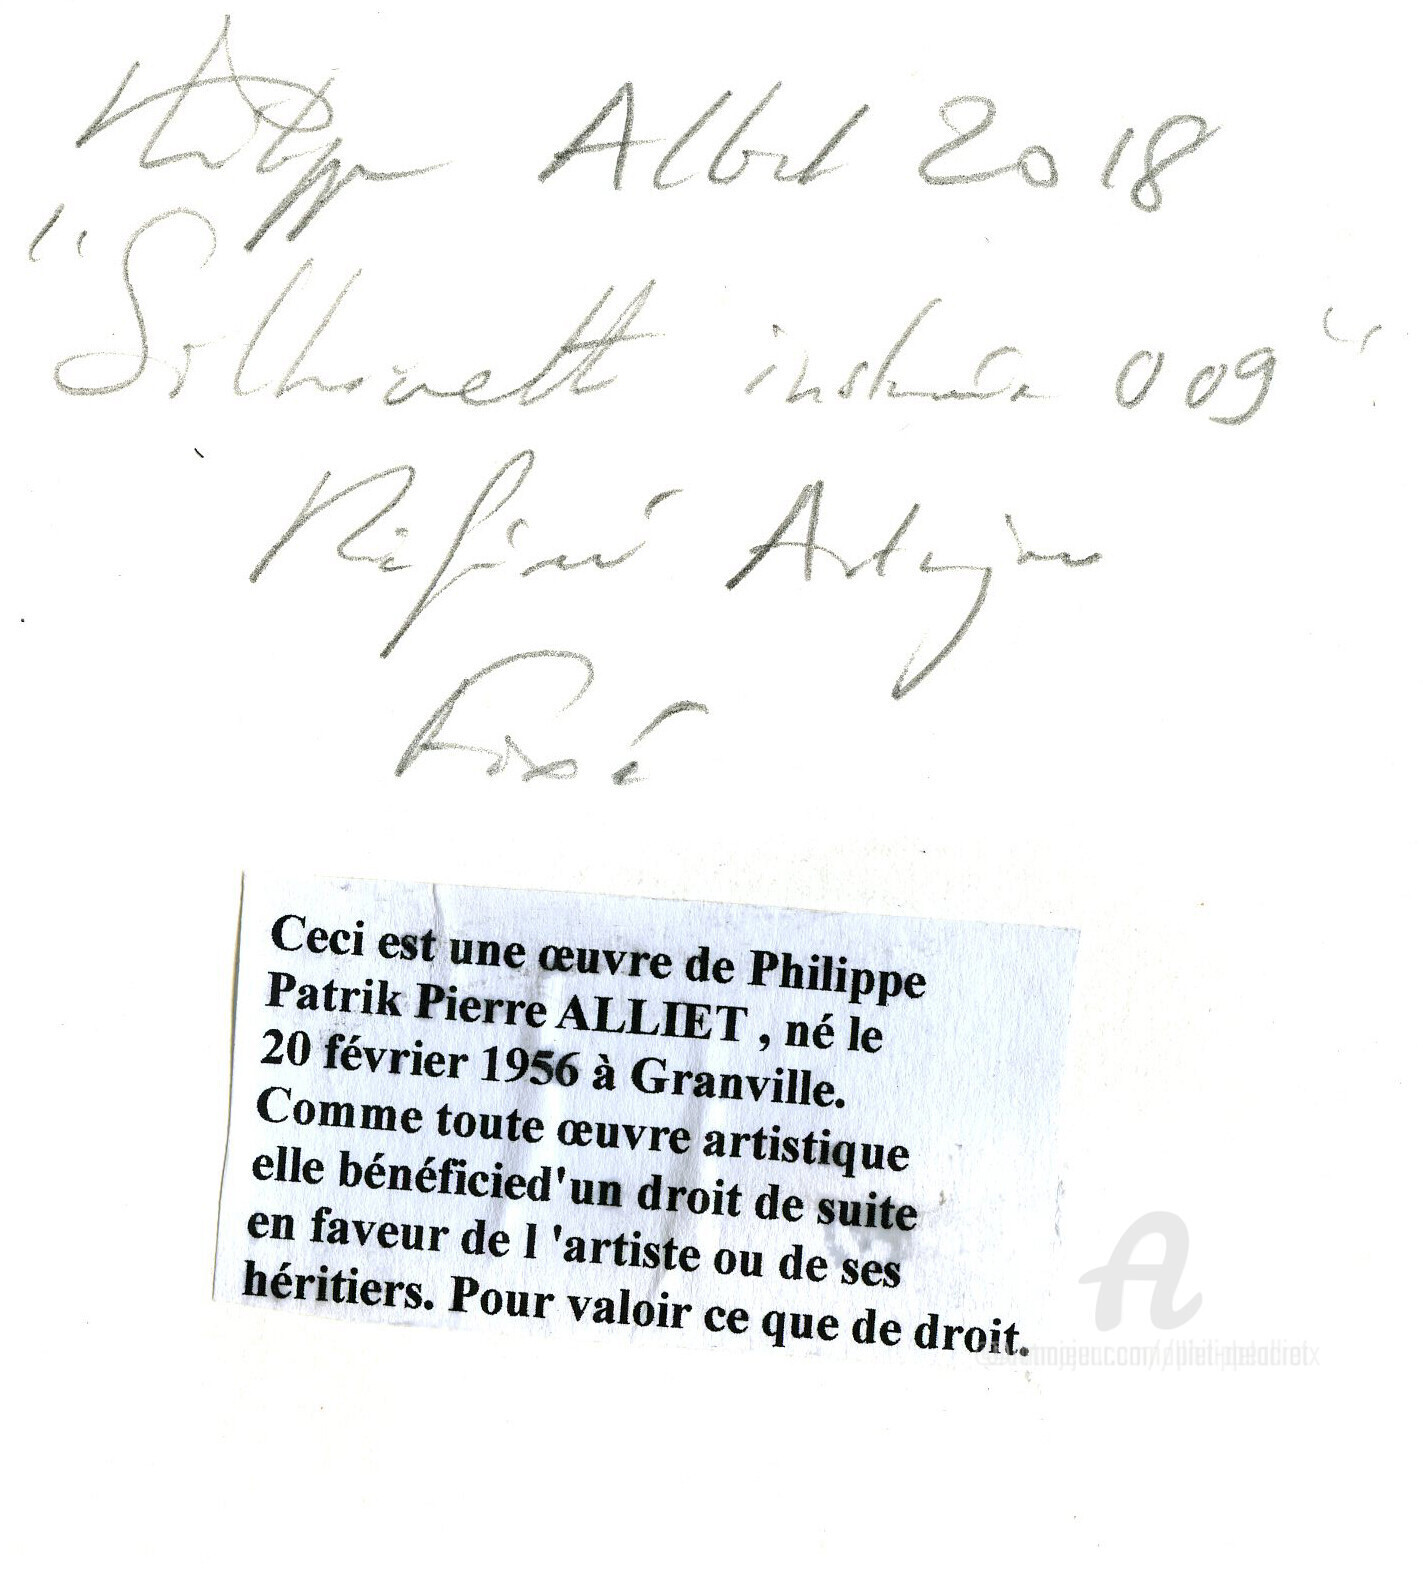 Philippe Alliet 2018
"Silhouette instantanée 009"
Référencé Artmajeur
Fixé
Ceci est une œuvre de Philippe
Patrik Pierre ALLIET , né le
20 février 1956 à Granville.
Comme toute œuvre artistique
elle bénéficied'un droit de suite
en faveur de l 'artiste ou de ses
héritiers. Pour valoir ce que de droit.
A